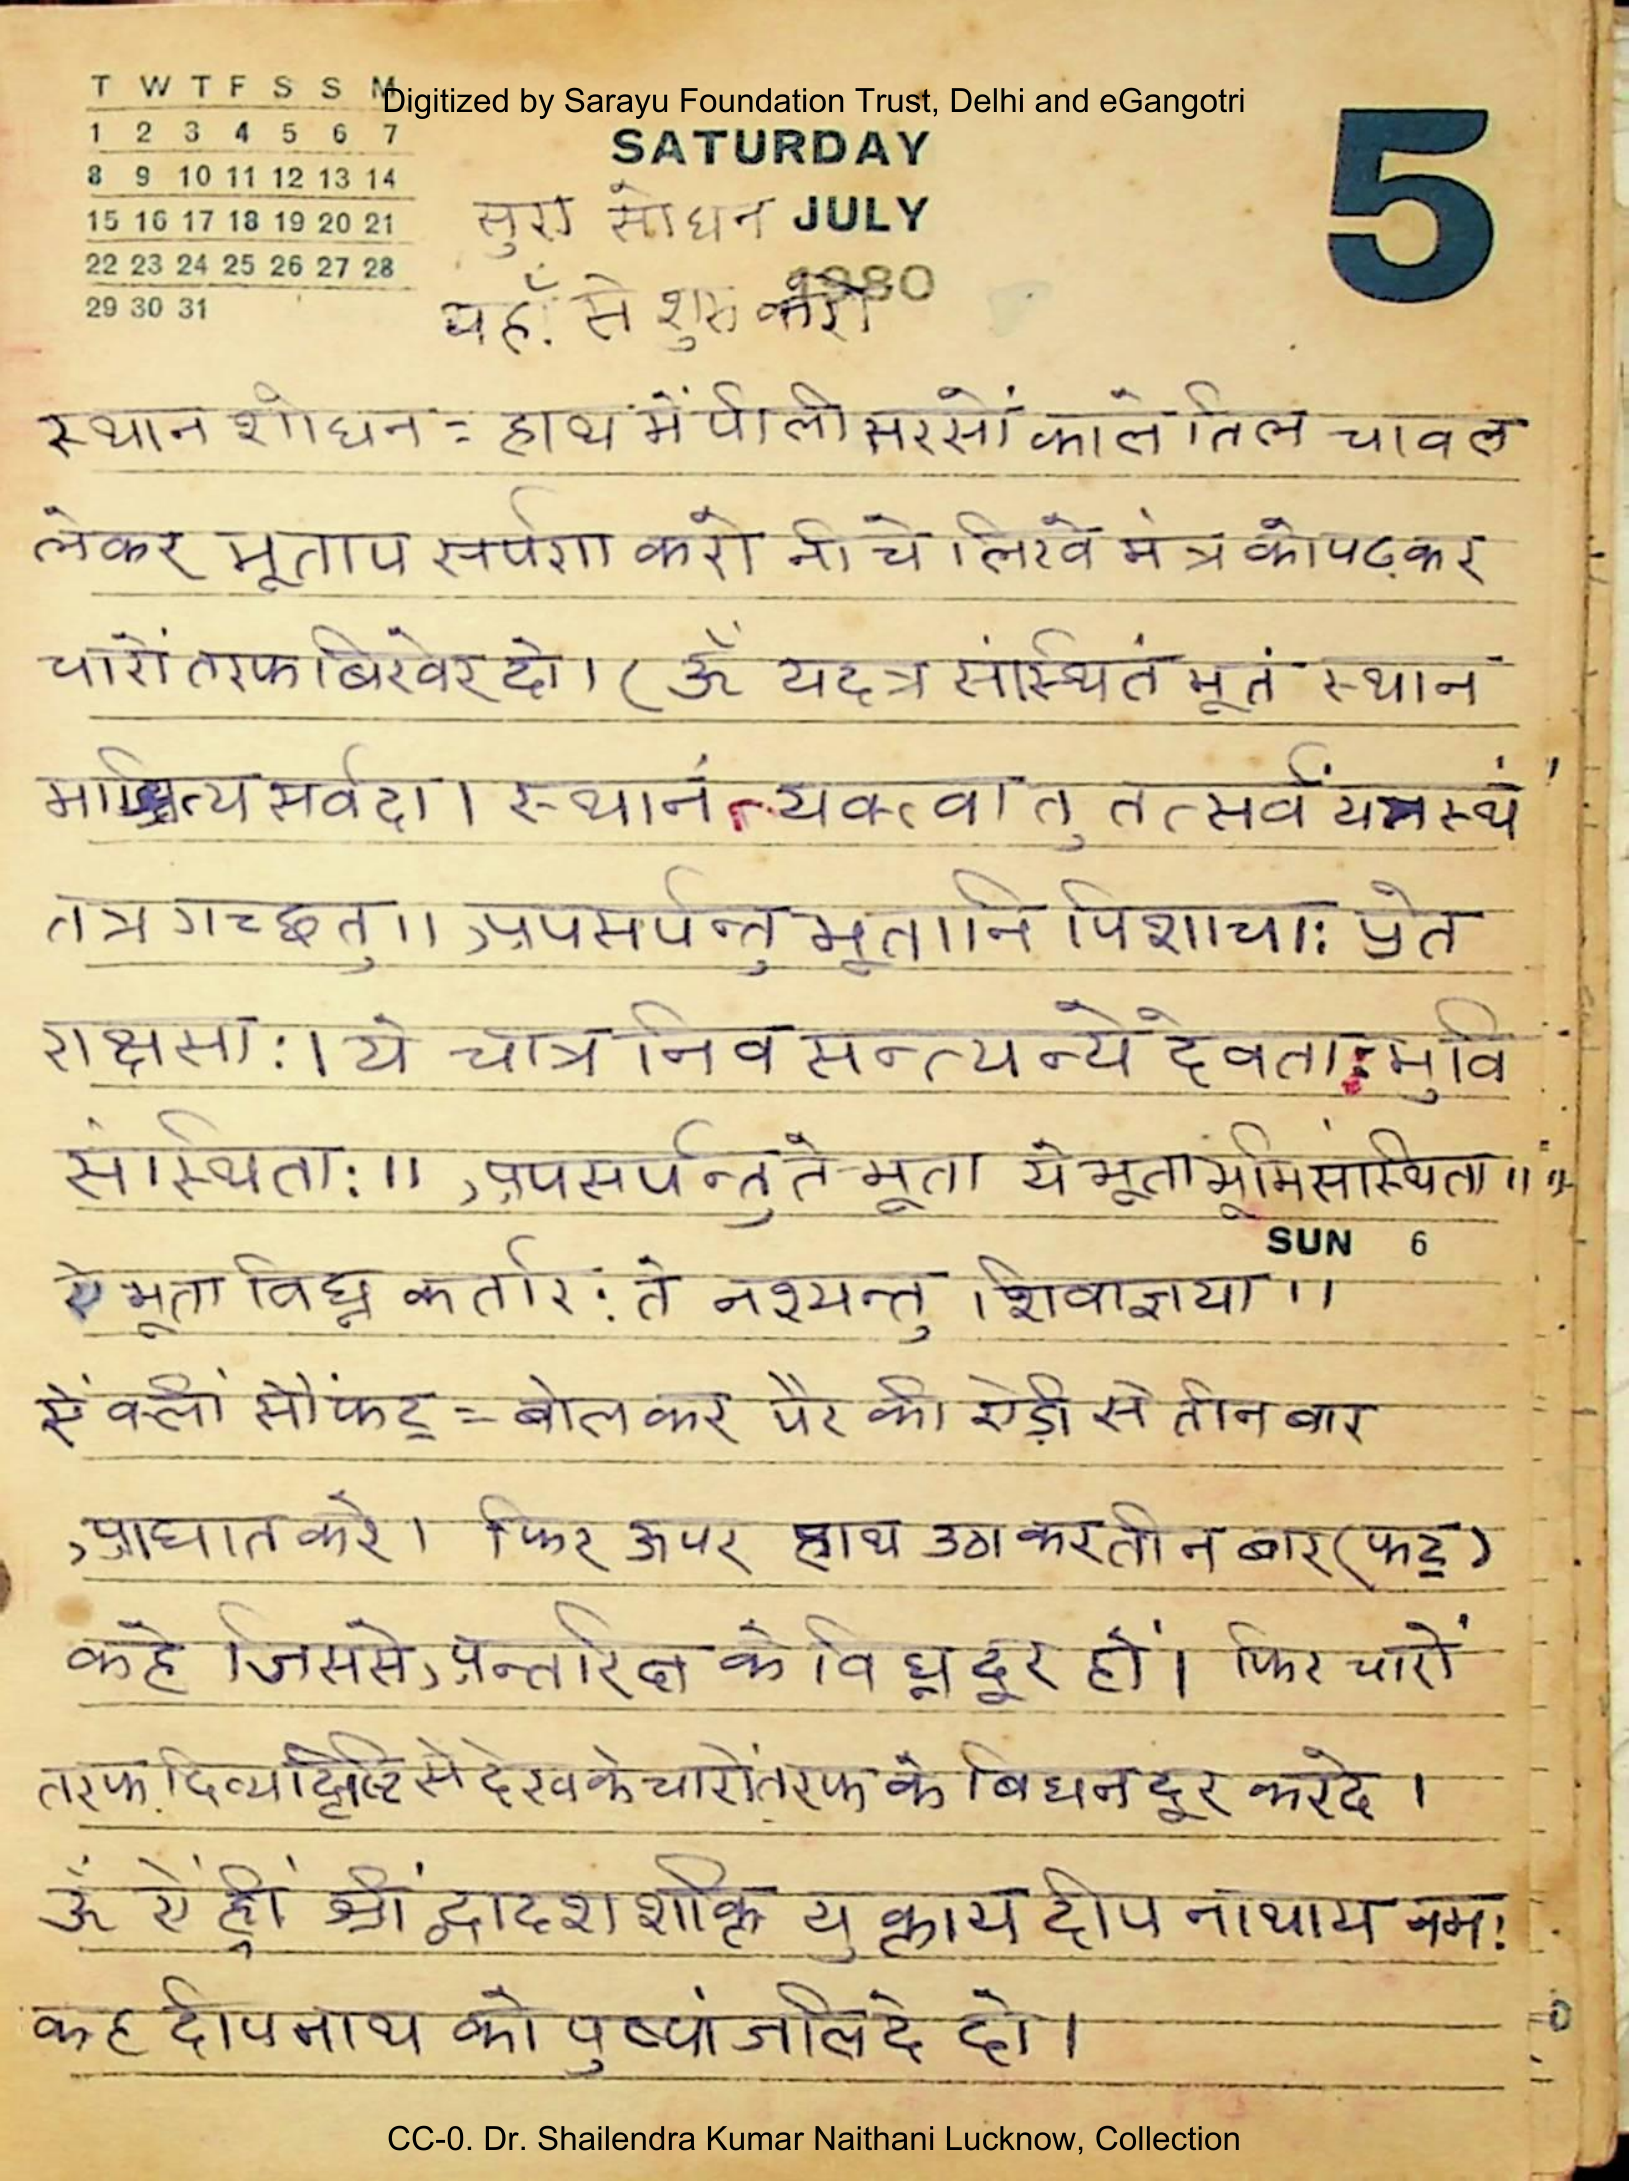 T W T F S S M
Digitized by Sarayu Foundation Trust, Delhi and eGangotri
1 2 3 4 5 6 7
8 9 10 11 12 13 14
15 16 17 18 19 20 21
22 23 24 25 26 27 28
29 30 31
SATURDAY
JULY
1980
5
सुरा सोधन
यहाँ से शुरु करो
स्थान शोधन = हाथ में पीली सरसों काले तिल चावल
लेकर भूताप सर्पण करो नीचे लिखे मंत्र को पढ़कर
चारों तरफ बिखेर दो। (ॐ यदत्र संस्थितं भूतं स्थान
माश्रित्य सर्वदा। स्थानं त्यक्त्वा तु तत्सर्वं यत्रस्थं
तत्र गच्छतु॥ अपसर्पन्तु भूतानि पिशाचाः प्रेत
राक्षसाः। ये चात्र निवसन्त्यन्ये देवताः भुवि
संस्थिताः॥ अपसर्पन्तु ते भूता ये भूता भूमि संस्थिता॥
SUN 6
ये भूता विघ्न कर्तारः ते नश्यन्तु शिवाज्ञया॥
ऐं क्लीं सौं फट् = बोलकर पैर की ऐड़ी से तीन बार
आघात करे। फिर ऊपर हाथ उठाकर तीन बार (फट्)
कहे जिससे अन्तरिक्ष के विघ्न दूर हों। फिर चारों
तरफ दिव्य दृष्टि से देख के चारों तरफ के बिघन दूर करदे।
ॐ ऐं ह्रीं श्रीं द्वादश शक्ति युक्ताय दीप नाथाय नमः
कह दीपनाथ को पुष्पांजलि दे दो।
CC-0. Dr. Shailendra Kumar Naithani Lucknow, Collection